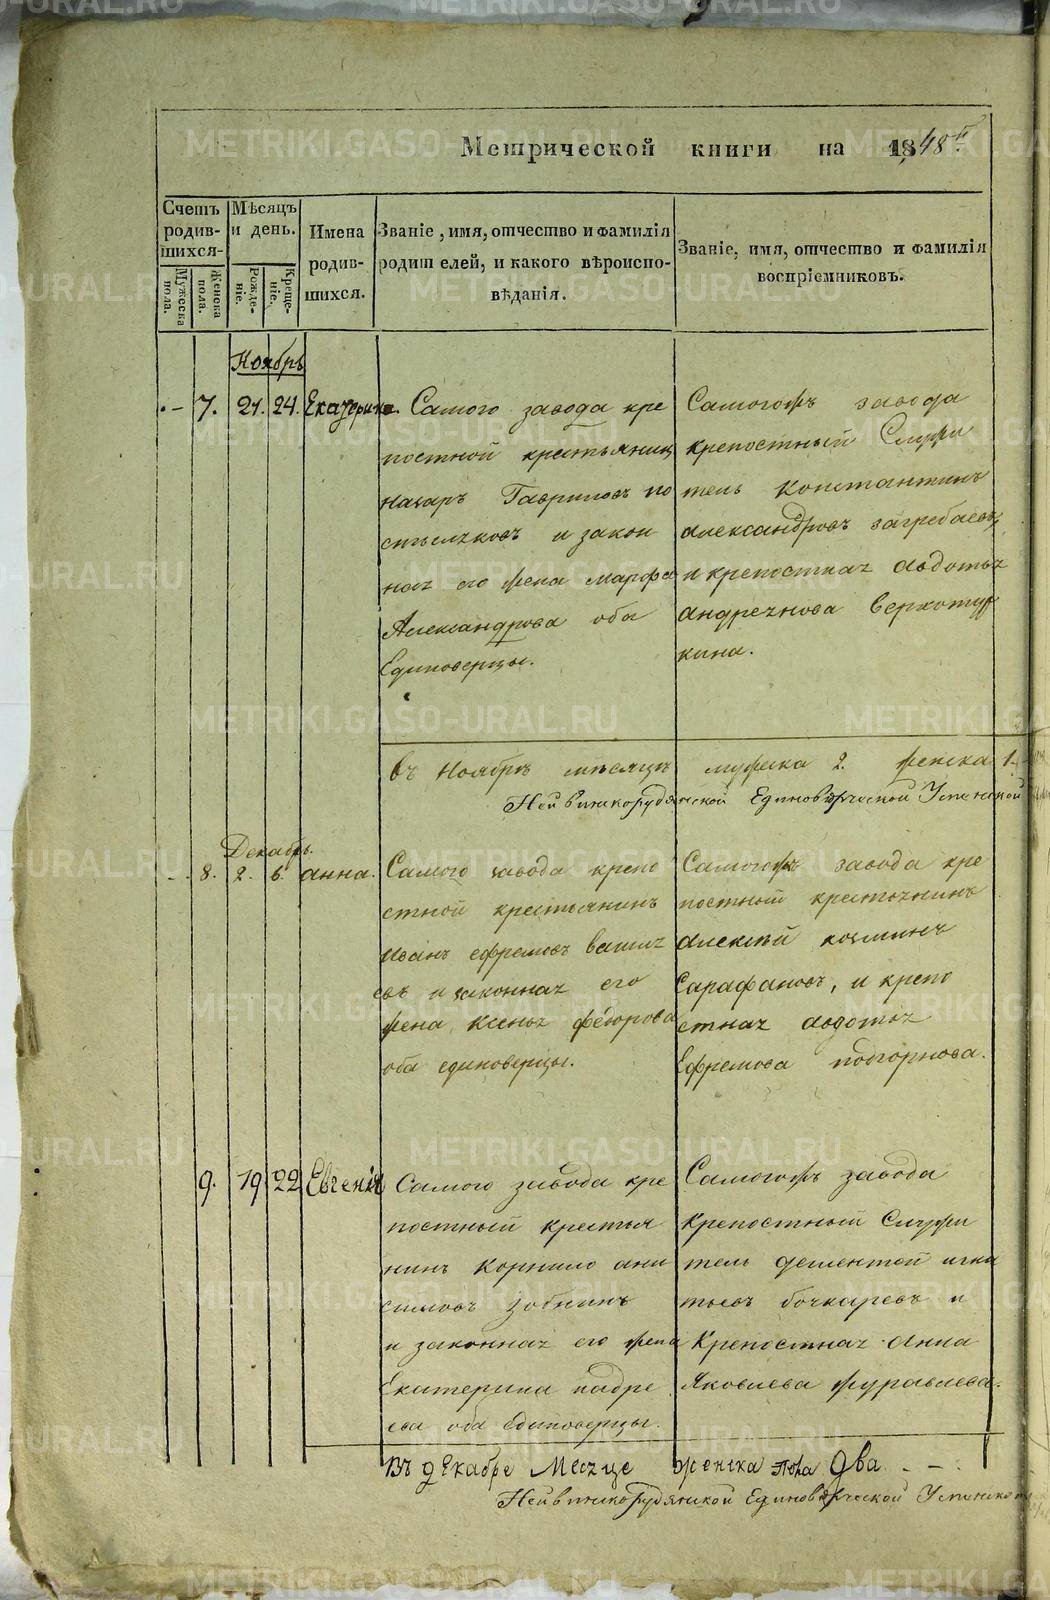 METRIKI.GASO-URAL.RU
Метрической книги на 1848й
Счетъ родившихся.
Мужеска пола.
Женска пола.
Мѣсяцъ и день.
Рожденіе.
Крещеніе.
Имена родившихся.
Званіе, имя, отчество и фамилія
родителей, и какого вѣроиспо-
вѣданія.
Званіе, имя, отчество и фамилія
воспріемниковъ.
Ноябрь
7. 21. 24. Екатерина.
Самого завода кре
постной крестьянинъ
назаръ Гавриловъ по
стыляковъ и закон
ная его жена марфа
Александрова оба
Единоверцы.
Самогожъ завода
крепостный Служи
тель константинъ
александровъ загребаевъ,
и крепостная авдотья
андреянова верхотур
кина.
въ Ноябрѣ мѣсяцѣ мужеска 2. женска 1.
Нейвинскорудянской Единовѣрческой Успенской
Декабрь.
8. 2. 6. анна.
Самого завода крепо
стной крестьянинъ
иванъ ефремовъ вашля
евъ и законная его
жена, ксенья федорова
оба единоверцы.
Самогожъ завода кре
постный крестьянинъ
алексѣй козминъ
Сарафановъ, и крепо
стная авдотья
Ефремова подгорнова.
9. 19. 22. Евгенія
Самого завода кре
постный крестья
нинъ корнило ани
симовъ зобнинъ
и законная его жена
Екатерина надре
ева оба Единоверцы.
Самогожъ завода
крепостный Служи
тель дементей игна
тьевъ бочкаревъ и
Крепостная анна
Яковлева журавлева.
Въ декабре месяце женска пола два
Нейвинскорудянской Единовѣрческой Успенской